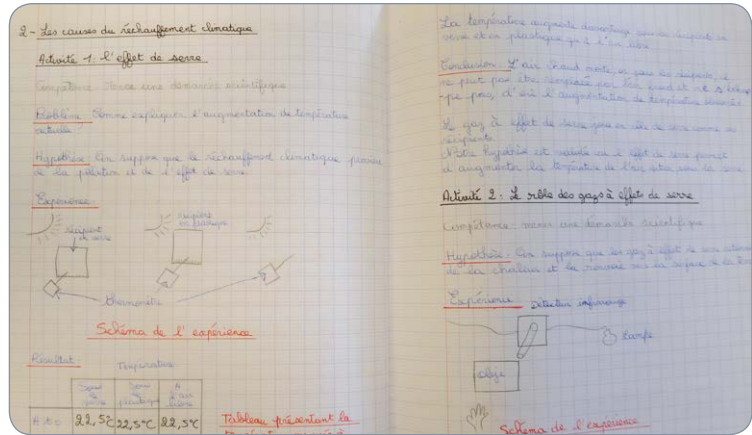 2 - Les causes du réchauffement climatique
Activité 1: l'effet de serre
Compétence: Mener une démarche scientifique
Problème: Comme expliquer l'augmentation de température
actuelle?
Hypothèse: On suppose que le réchauffement climatique provient
de la pollution et de l'effet de serre.
Expérience:
récipient
en verre
récipient
en plastique
thermomètre
Schéma de l'expérience
Résultat:
Température
Sous
verre
Sous
plastique
A
l'air
libre
A t=0
22,5°C
22,5°C
22,5°C
Tableau présentant la
La température augmente davantage sous les récipients en
verre et en plastique qu'à l'air libre.
Conclusion: L'air chaud monte, or sous les récipients, il
ne peut pas être remplacé par l'air froid et ne s'échappe
pas, d'où l'augmentation de température observée.
Le gaz à effet de serre joue un rôle de serre comme les
récipients.
Notre hypothèse est validée car l'effet de serre permet
d'augmenter la température de l'air
Activité 2: Le rôle des gazs à effets de serre
Compétence: mener une démarche scientifique
Hypothèse: On suppose que les gaz à effet de serre
de la chaleur et la renvoie sur la surface de la
Expérience
Détecteur infrarouge
Lampe
objet
Schéma de l'expérience